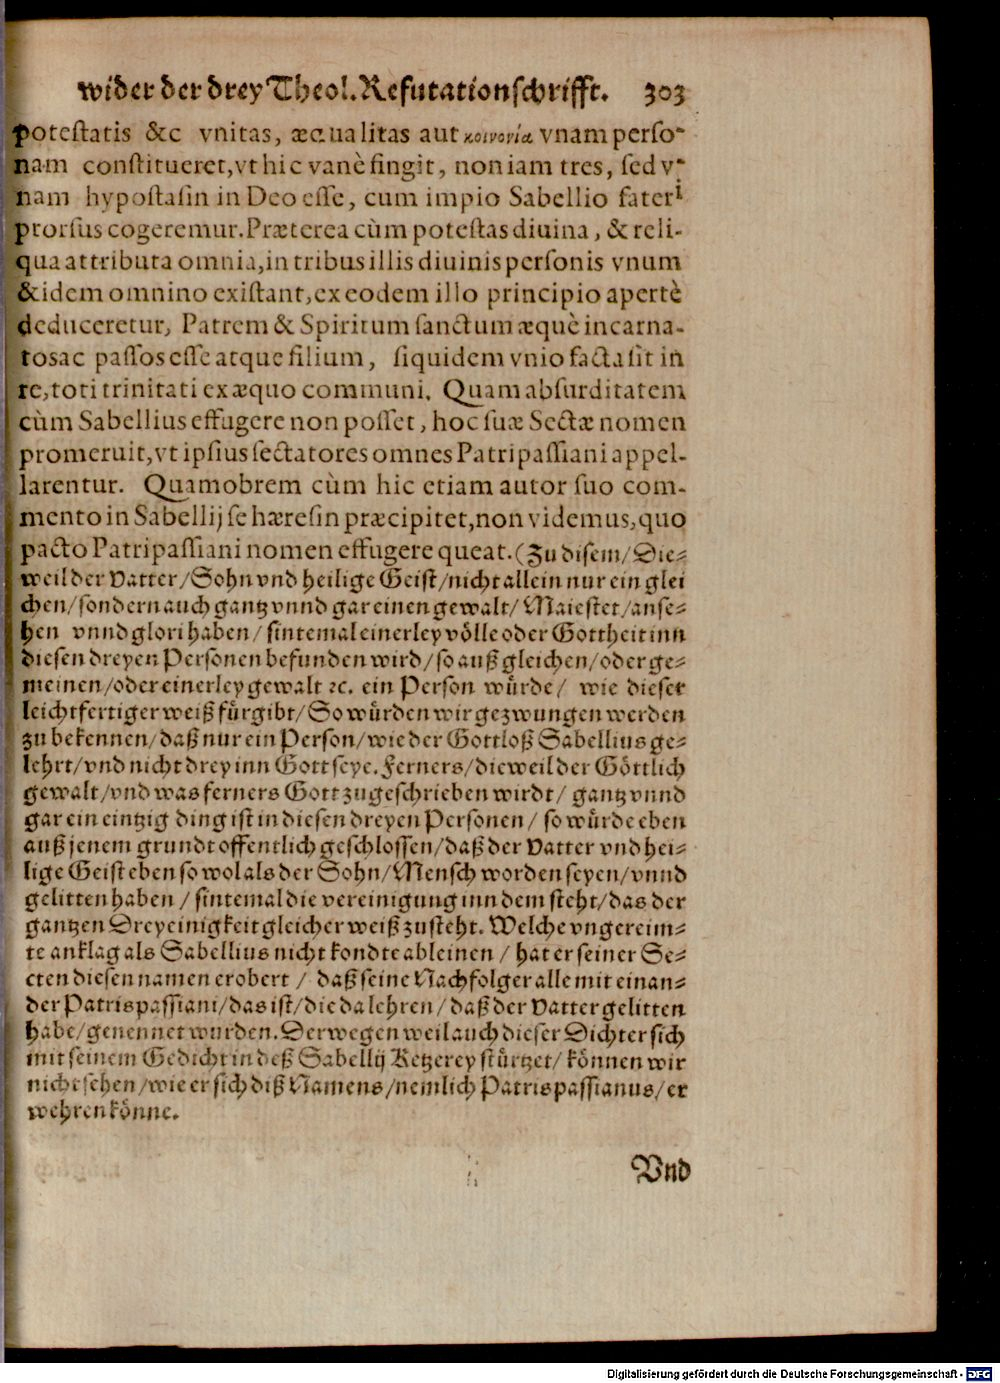 wider der drey Theol. Refutationschrifft. 303
potestatis &c vnitas, æqualitas aut κοινονία vnam perso-
nam constitueret, vt hic vanè fingit, non iam tres, sed v-
nam hypostasin in Deo esse, cum impio Sabellio fateri
prorsus cogeremur. Præterea cùm potestas diuina, & reli-
qua attributa omnia, in tribus illis diuinis personis vnum
& idem omnino existant, ex eodem illo principio apertè
deduceretur, Patrem & Spiritum sanctum æquè incarna-
tos ac passos esse atque filium, siquidem vnio facta sit in
re, toti trinitati ex æquo communi. Quam absurditatem
cùm Sabellius effugere non posset, hoc suæ Sectæ nomen
promeruit, vt ipsius sectatores omnes Patripassiani appel-
larentur. Quamobrem cùm hic etiam autor suo com-
mento in Sabellij se hæresin præcipitet, non videmus, quo
pacto Patripassiani nomen effugere queat. (Zu disem/ Die-
weil der Vatter/ Sohn vnd heilige Geist/ nicht allein nur ein glei
chen/ sondern auch gantz vnnd gar einen gewalt/ Maiestet/ anse-
hen vnnd glori haben/ sintemal einerley völle oder Gottheit inn
diesen dreyen Personen befunden wird/ so auß gleichen/ oder ge-
meinen/ oder einerley gewalt ꝛc. ein Person würde/ wie dieser
leichtfertiger weiß fürgibt/ So würden wir gezwungen werden
zu bekennen/ daß nur ein Person/ wie der Gottloß Sabellius ge-
lehrt/ vnd nicht drey inn Gott seye. Ferners/ dieweil der Göttlich
gewalt/ vnd was ferners Gott zugeschrieben wirdt/ gantz vnnd
gar ein eintzig ding ist in diesen dreyen Personen/ so würde eben
auß jenem grundt offentlich geschlossen/ daß der Vatter vnd hei-
lige Geist eben so wol als der Sohn/ Mensch worden seyen/ vnnd
gelitten haben/ sintemal die vereinigung inn dem steht/ das der
gantzen Dreyeinigkeit gleicher weiß zusteht. Welche vngereim-
te anklag als Sabellius nicht kondte ableinen/ hat er seiner Se-
cten diesen namen erobert/ daß seine Nachfolger alle mit einan-
der Patrispassiani/ das ist/ die da lehren/ daß der Vatter gelitten
habe/ genennet wurden. Derwegen weil auch dieser Dichter sich
mit seinem Gedicht in deß Sabellij Ketzerey stürtzet/ können wir
nicht sehen/ wie er sich diß Namens/ nemlich Patrispassianus/ er
wehren könne.
Vnd
Digitalisierung gefördert durch die Deutsche Forschungsgemeinschaft - DFG